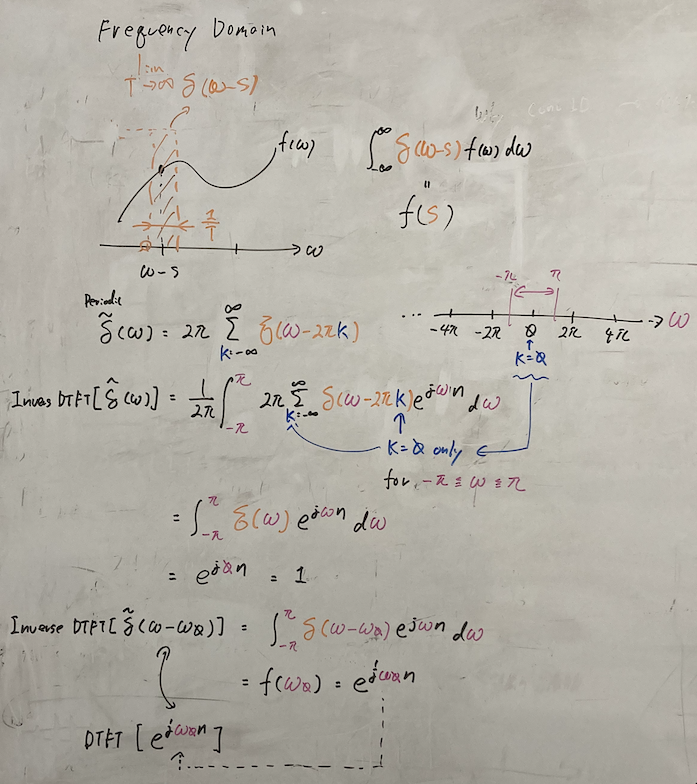 Frequency Domain
lim
T→∞ δ(ω-s)
f(ω)
∫_{-∞}^{∞} δ(ω-s) f(ω) dω
"
f(s)
1/T
0
ω
ω-s
Periodic
δ̃(ω) = 2π Σ_{k=-∞}^{∞} δ(ω-2πk)
-π π
... -4π -2π 0 2π 4π ω
k=0
Inves DTFT[δ̂(ω)] = 1/2π ∫_{-π}^{π} 2π Σ_{k=-∞}^{∞} δ(ω-2πk) e^{jωn} dω
k=0 only
for -π ≤ ω ≤ π
= ∫_{-π}^{π} δ(ω) e^{jωn} dω
= e^{j0n} = 1
Inverse DTFT[δ̃(ω-ω0)] = ∫_{-π}^{π} δ(ω-ω0) e^{jωn} dω
= f(ω0) = e^{jω0n}
DTFT [e^{jω0n}]